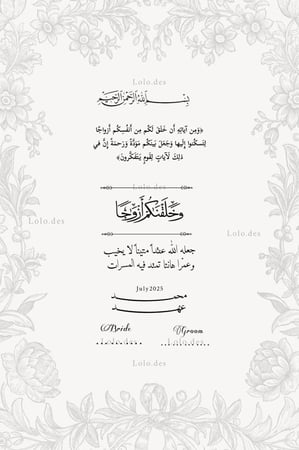 Lolo.des
بسم الله الرحمن الرحيم
﴿وَمِن آياتِهِ أَن خَلَقَ لَكُم مِن أَنفُسِكُم أَزواجًا
لِتَسكُنوا إِلَيها وَجَعَلَ بَينَكُم مَوَدَّةً وَرَحمَةً إِنَّ في
ذلِكَ لَآياتٍ لِقَومٍ يَتَفَكَّرونَ﴾
Lolo.des
وَخَلَقْنَاكُمْ أَزْوَاجًا
Lolo.des Lolo.des
جعله الله عقداً متيناً لا يخيب
وعمرا هانئا تمتد فيه المسرات
July2025
محمد
عهد
Bride Groom
Lolo.des Lolo.des
Lolo.des